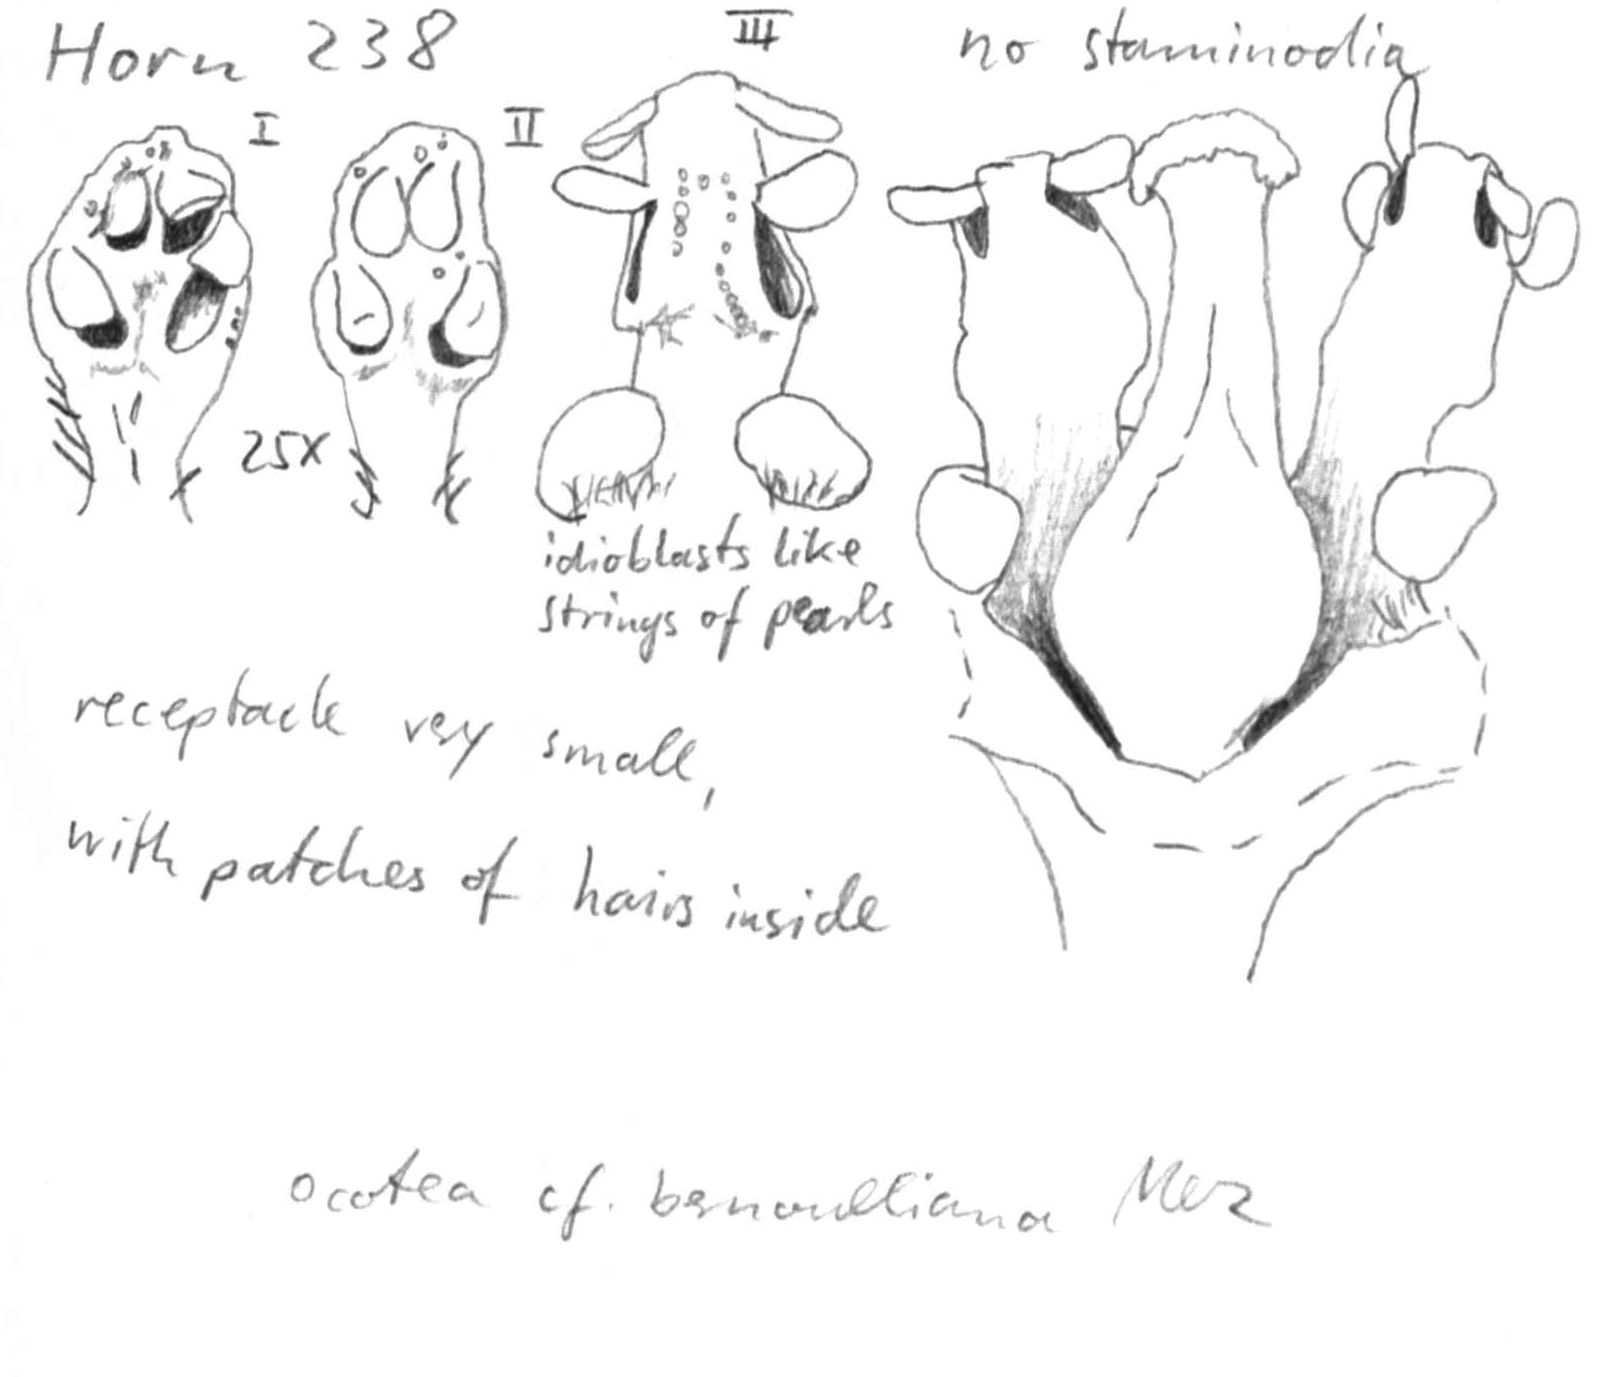 Horn 238
III
no staminodia
I
II
25x
idioblasts like
strings of pearls
receptacle very small,
with patches of hairs inside
Ocotea cf. bernoulliana Mez